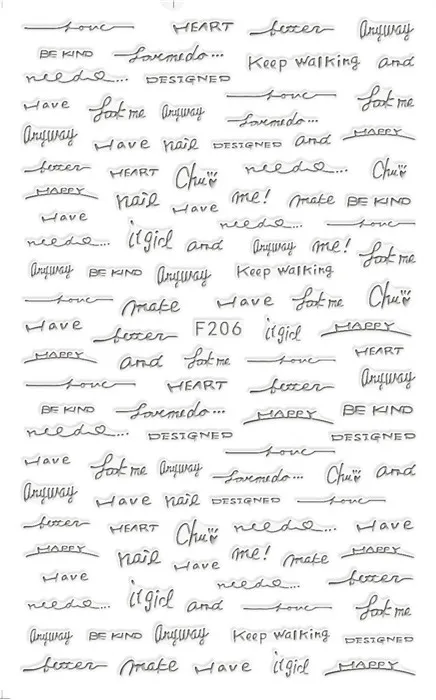 Love HEART better Anyway
BE KIND Formedo... Keep Walking and
need... DESIGNED
Have Look me Anyway Love Look me
Anyway Have nail DESIGNED Formedo... and HAPPY
better HEART Chu need... Chu
HAPPY nail Have me! make BE KIND
Have need... Love
need... it girl and Anyway me! Look me
Anyway BE KIND Anyway Keep Walking
Love make Have Look me Chu
Have better F206 it girl HAPPY
HAPPY and Look me Love HEART
Love HEART better Anyway
BE KIND Formedo... HAPPY BE KIND
need... DESIGNED Love DESIGNED
Have Look me Anyway Formedo... Chu and
Anyway Have nail DESIGNED Love
better HEART Chu need... Have
HAPPY nail Have me! make HAPPY
Have need... better
need... it girl and Love Look me
Anyway BE KIND Anyway Keep Walking DESIGNED
better make Have it girl HAPPY